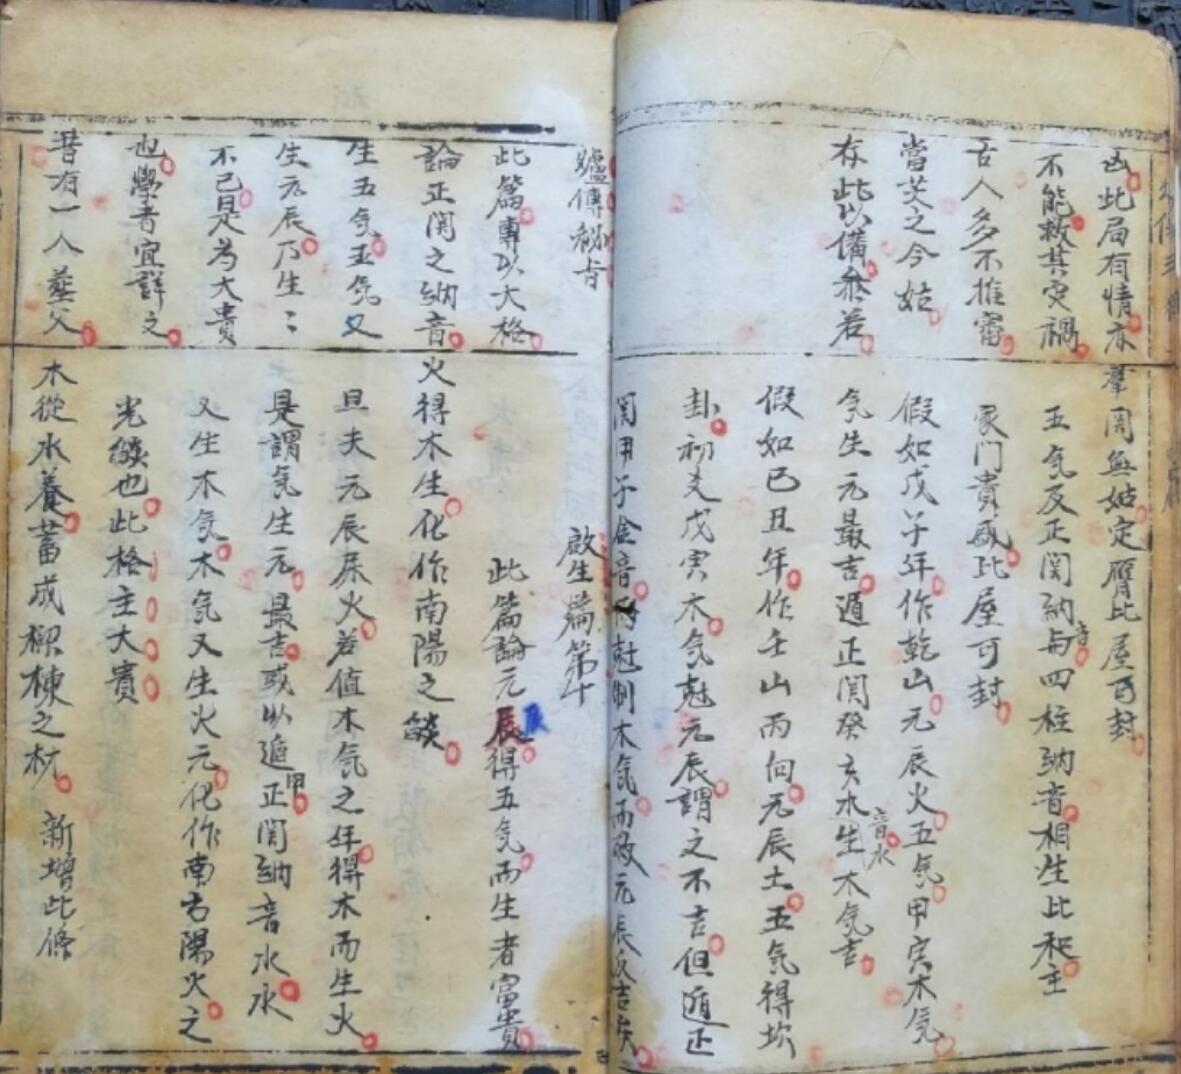 凶此局有情亦
不能救其灾禍
古人多不推審
當艾之今姑
存此以備叅若
羣関無妨定膺比屋可封
五気及正関納音與四柱納音相生比和主
家門貴盛比屋可封
假如戊午年作乾山元辰火五気甲寅木気
気生元最吉遁正関癸亥水音水生木気吉
假如己丑年作壬山丙向元辰土五気得坎
卦初爻戊寅木気尅元辰謂之不吉但遁正
関甲子金音為尅制木気而救元辰反吉矣
爐傳秘旨
此篇專以大格
論正関之納音
生五気五気又
生元辰乃生〻
不已是为大貴
也學者宜詳之
昔有一人塟父
啟生篇第十
此篇論元辰得五気而生者富貴
火得木生化作南陽之燄
且夫元辰屎火若值木気之年得木而生火
是謂気生元最吉或以遁正関納音水水
甲
又生木気木気又生火元化作南方陽火之
光燄也此格主大貴
木從水養蓄成樑棟之材
新增此條